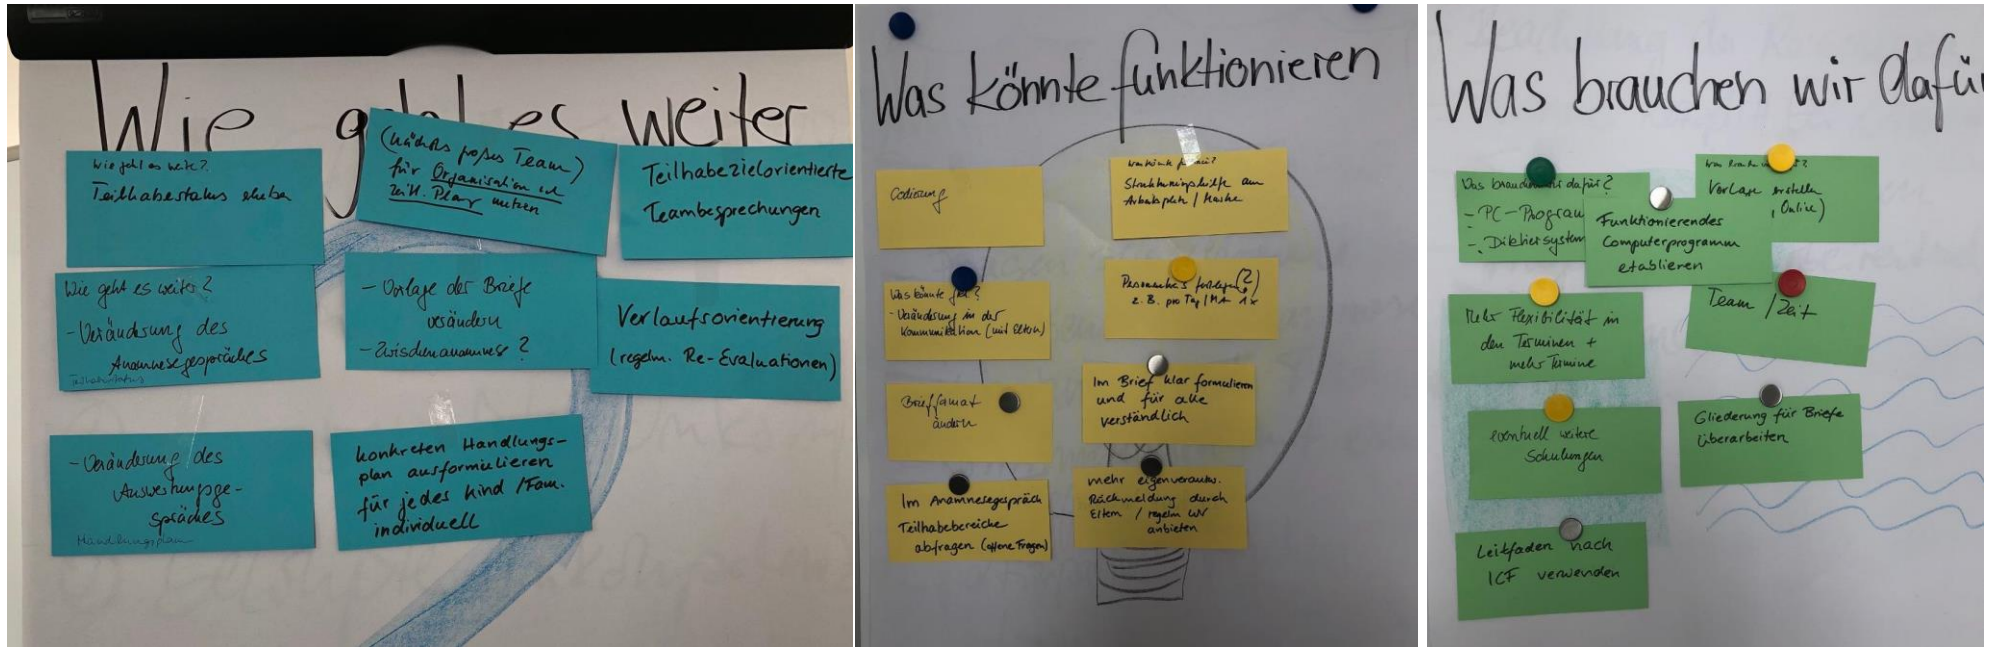 Wie geht es weiter
Wie geht es weiter?
Teilhabestatus
(nächstes großes Team)
für Organisation und
zeitl. Plan nutzen
Teilhabezielorientierte
Teambesprechungen
Wie geht es weiter?
- Veränderung des
Anamnesegespräches
Teilhabestatus
- Vorlage der Briefe
verändern
- Zwischenanamnese?
Verlaufsorientierung
(regelm. Re-Evaluationen)
- Veränderung des
Auswertungsge-
spräches
Handlungsplan
konkreten Handlungs-
plan ausformulieren
für jedes Kind/Fam.
individuell
Was könnte funktionieren
Codierung
Strukturierungshilfe am
Arbeitsplatz / Maske
Was könnte
- Veränderung in der
Kommunikation (mit Eltern)
festlegen (?)
z.B. pro Tag/MA 1x
Briefformat
ändern
Im Brief klar formulieren
und für alle
verständlich
Im Anamnesegespräch
Teilhabebereiche
abfragen (offene Fragen)
mehr eigenverantw.
Rückmeldung durch
Eltern / regelm
anbieten
Was brauchen wir dafür
Was brauchen wir dafür?
- PC-Program
- Diktiersystem
Funktionierendes
Computerprogramm
etablieren
Vorlage erstellen
, Online)
Mehr Flexibilität in
den Terminen +
mehr Termine
Team / Zeit
eventuell weitere
Schulungen
Gliederung für Briefe
überarbeiten
Leitfaden nach
ICF verwenden